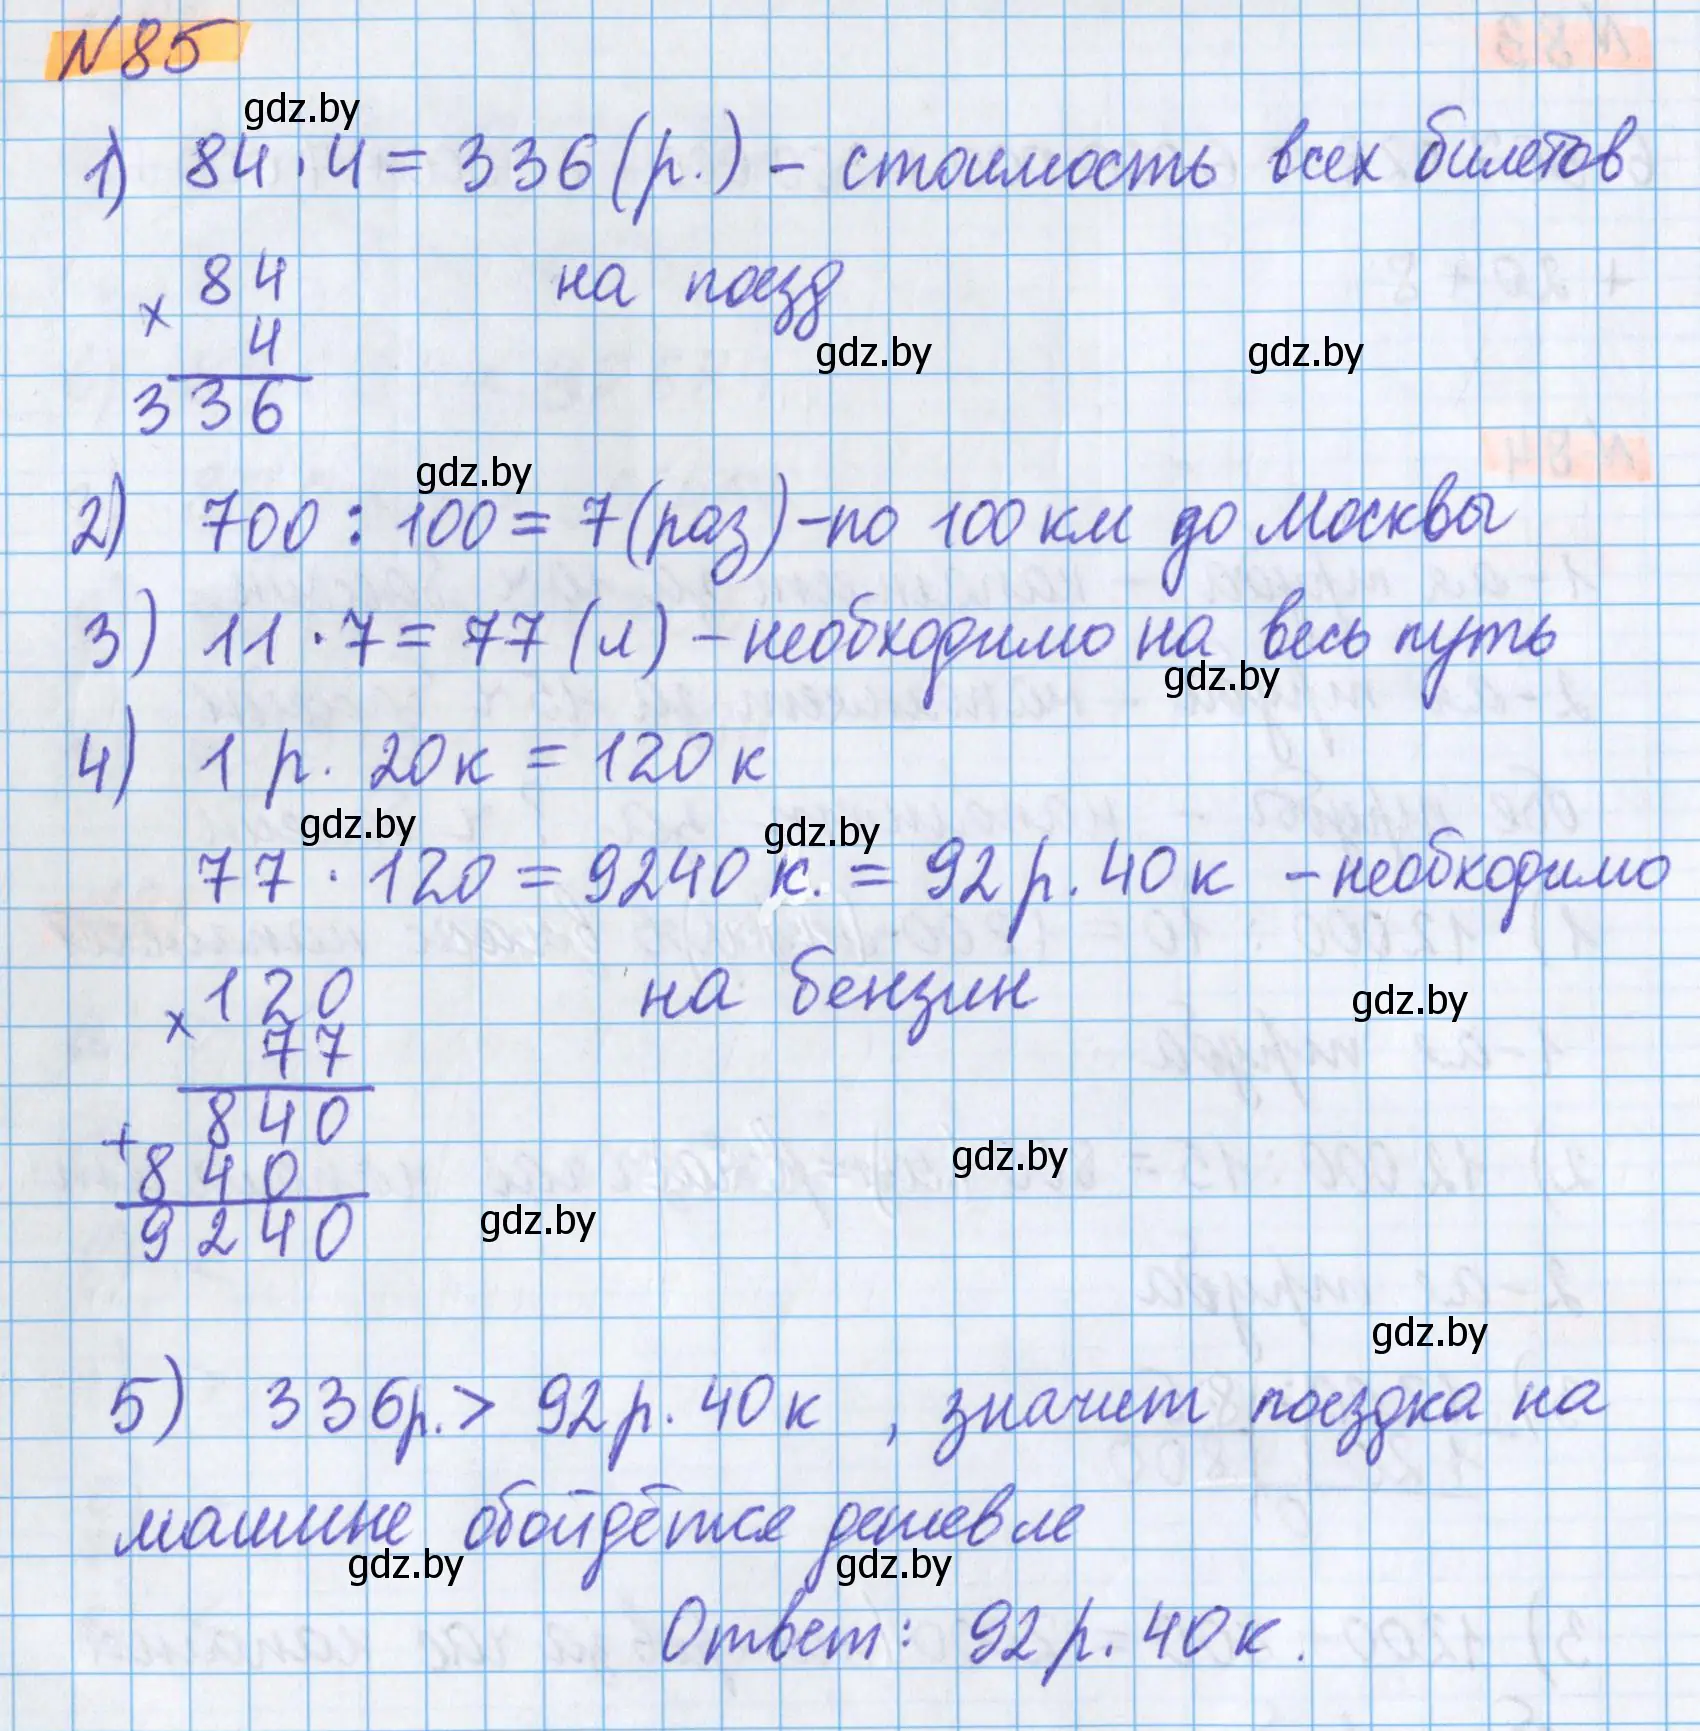 N85
gdz.by
1) 84 · 4 = 336 (р.) – стоимость всех билетов
на поезд
× 84
4
336
gdz.by gdz.by
gdz.by
2) 700 : 100 = 7 (раз) – по 100 км до Москвы
3) 11 · 7 = 77 (л) – необходимо на весь путь
gdz.by
4) 1 р. 20 к = 120 к
gdz.by gdz.by
77 · 120 = 9240 к. = 92 р. 40 к – необходимо
на бензин
gdz.by
× 120
77
840
+ 840
9240
gdz.by
gdz.by
gdz.by
5) 336 р. > 92 р. 40 к , значит поездка на
машине обойдётся дешевле
gdz.by gdz.by
Ответ: 92 р. 40 к.